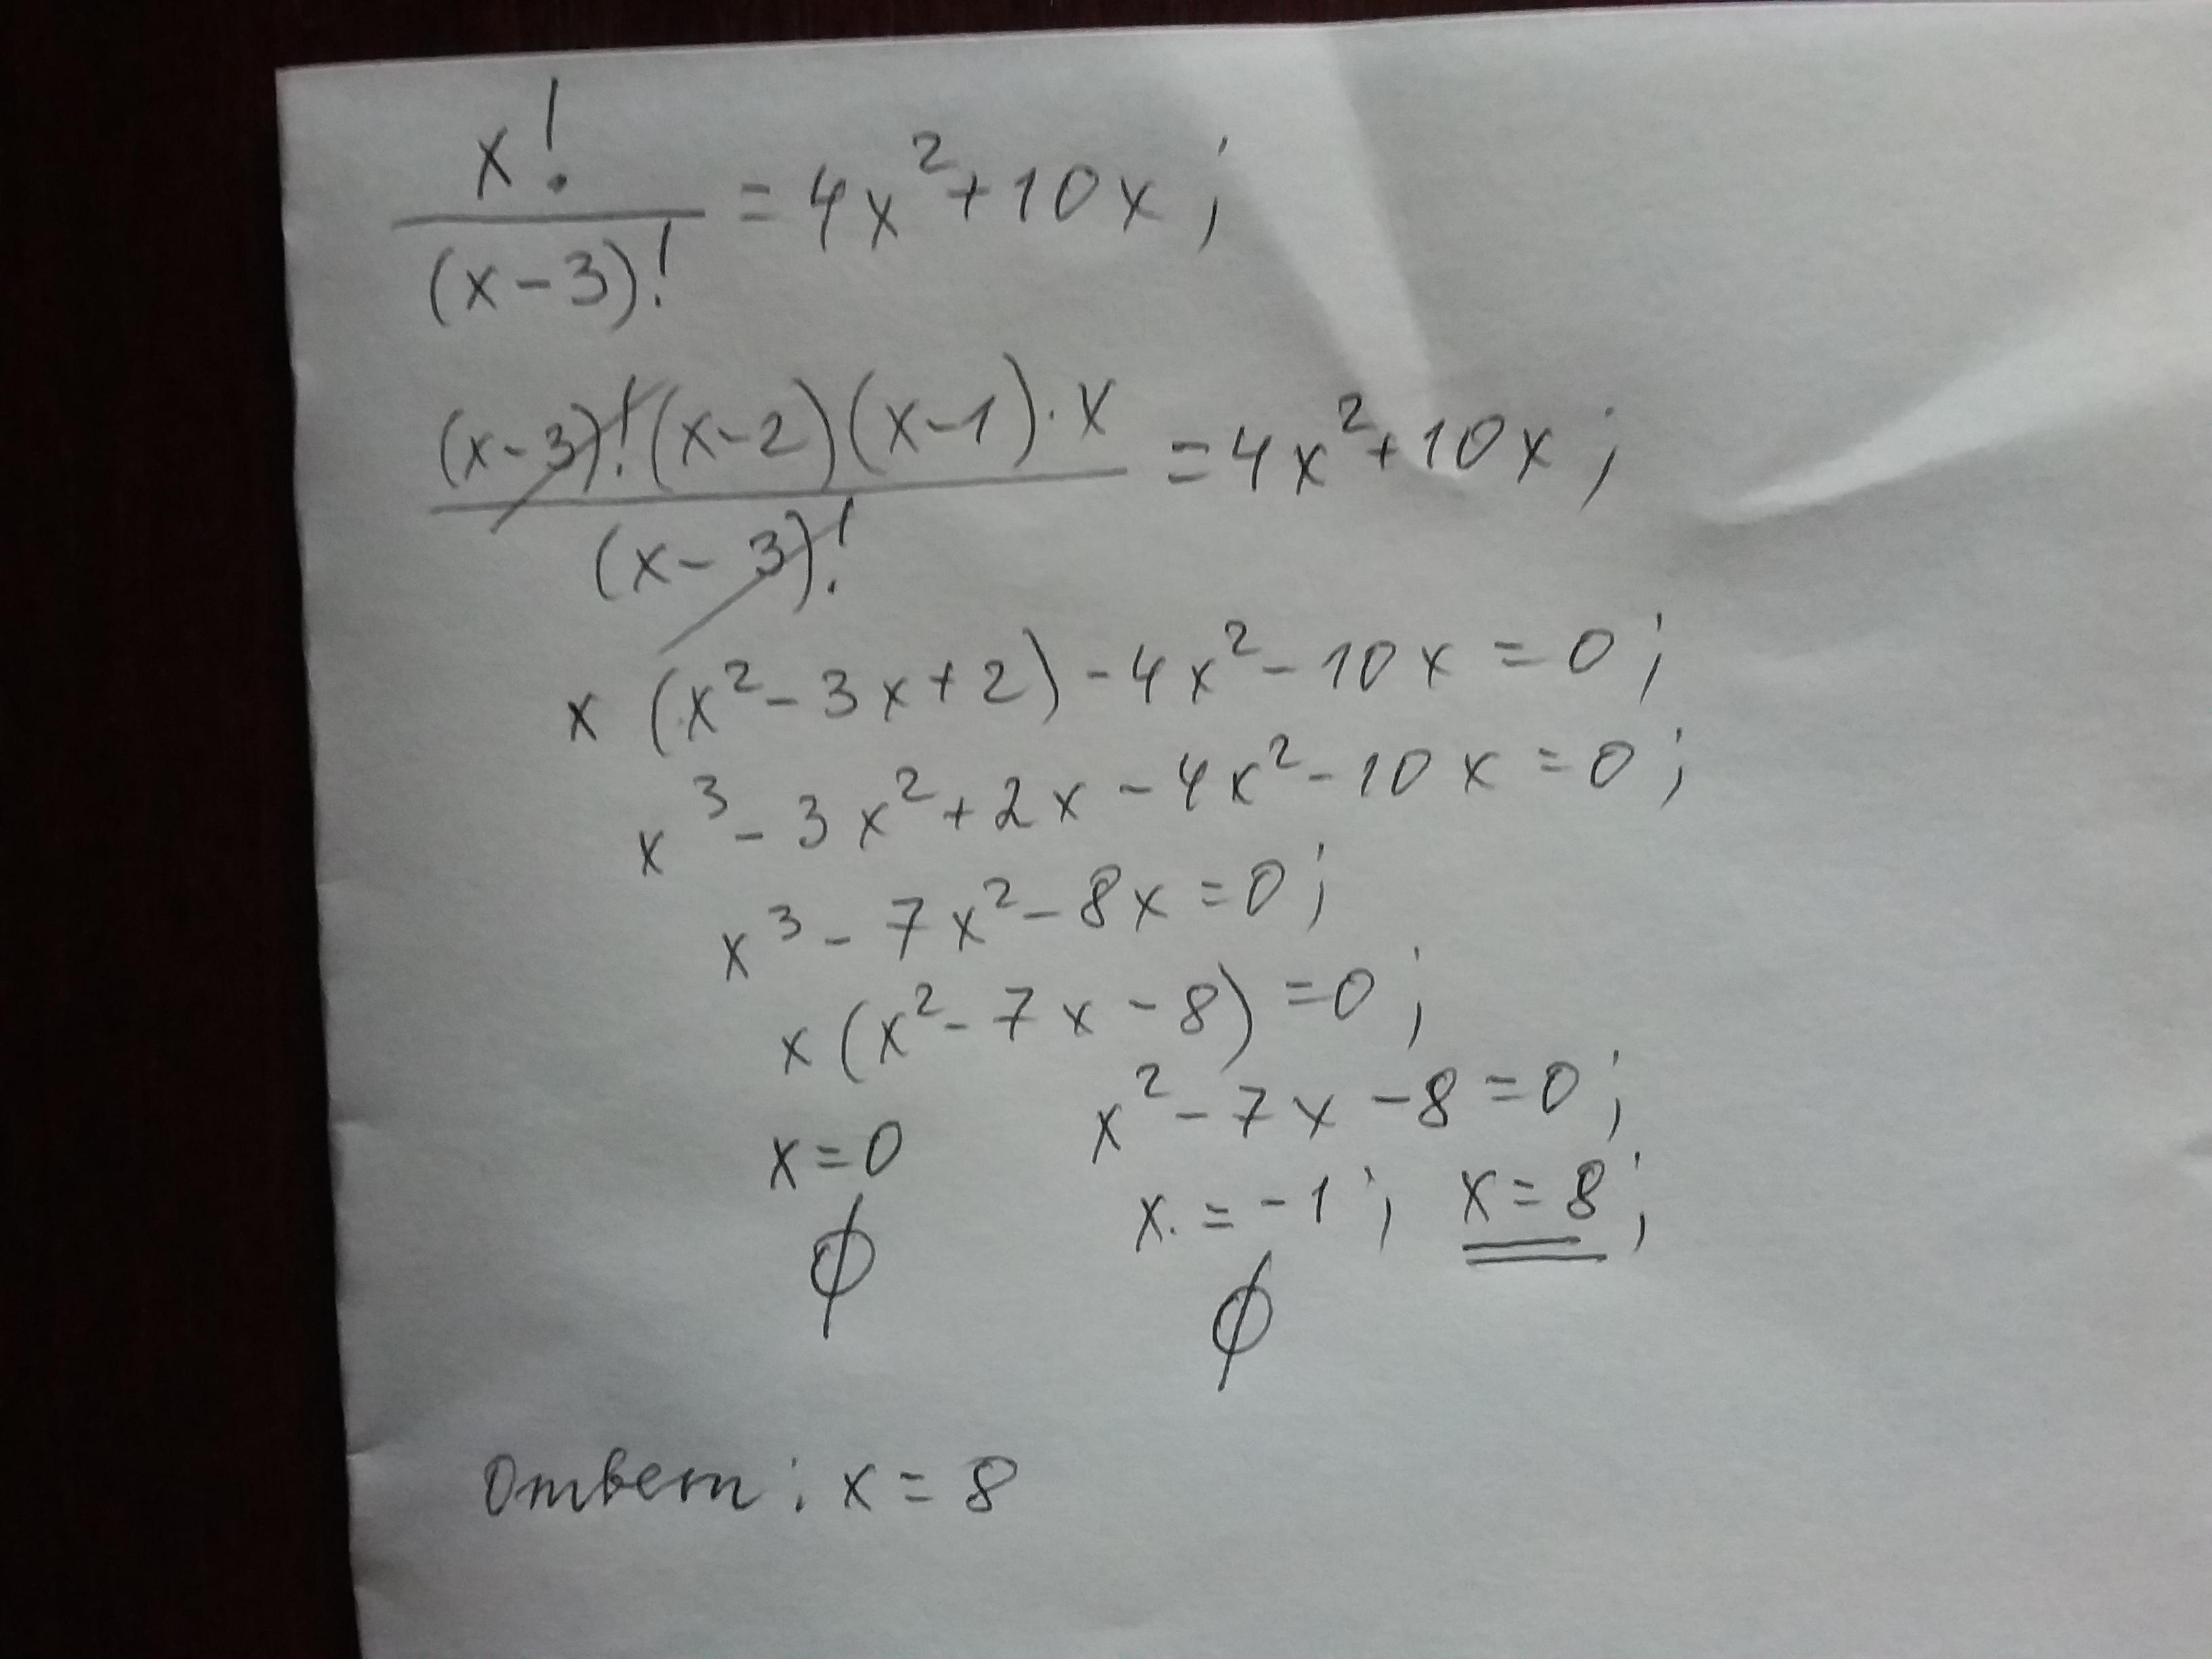 x! / (x-3)! = 4x²+10x;
(x-3)!(x-2)(x-1)·x / (x-3)! = 4x²+10x;
x (x²-3x+2)-4x²-10x=0;
x³-3x²+2x-4x²-10x=0;
x³-7x²-8x=0;
x(x²-7x-8)=0;
x=0 x²-7x-8=0;
x=-1; x=8;
∅ ∅
Ответ: x=8